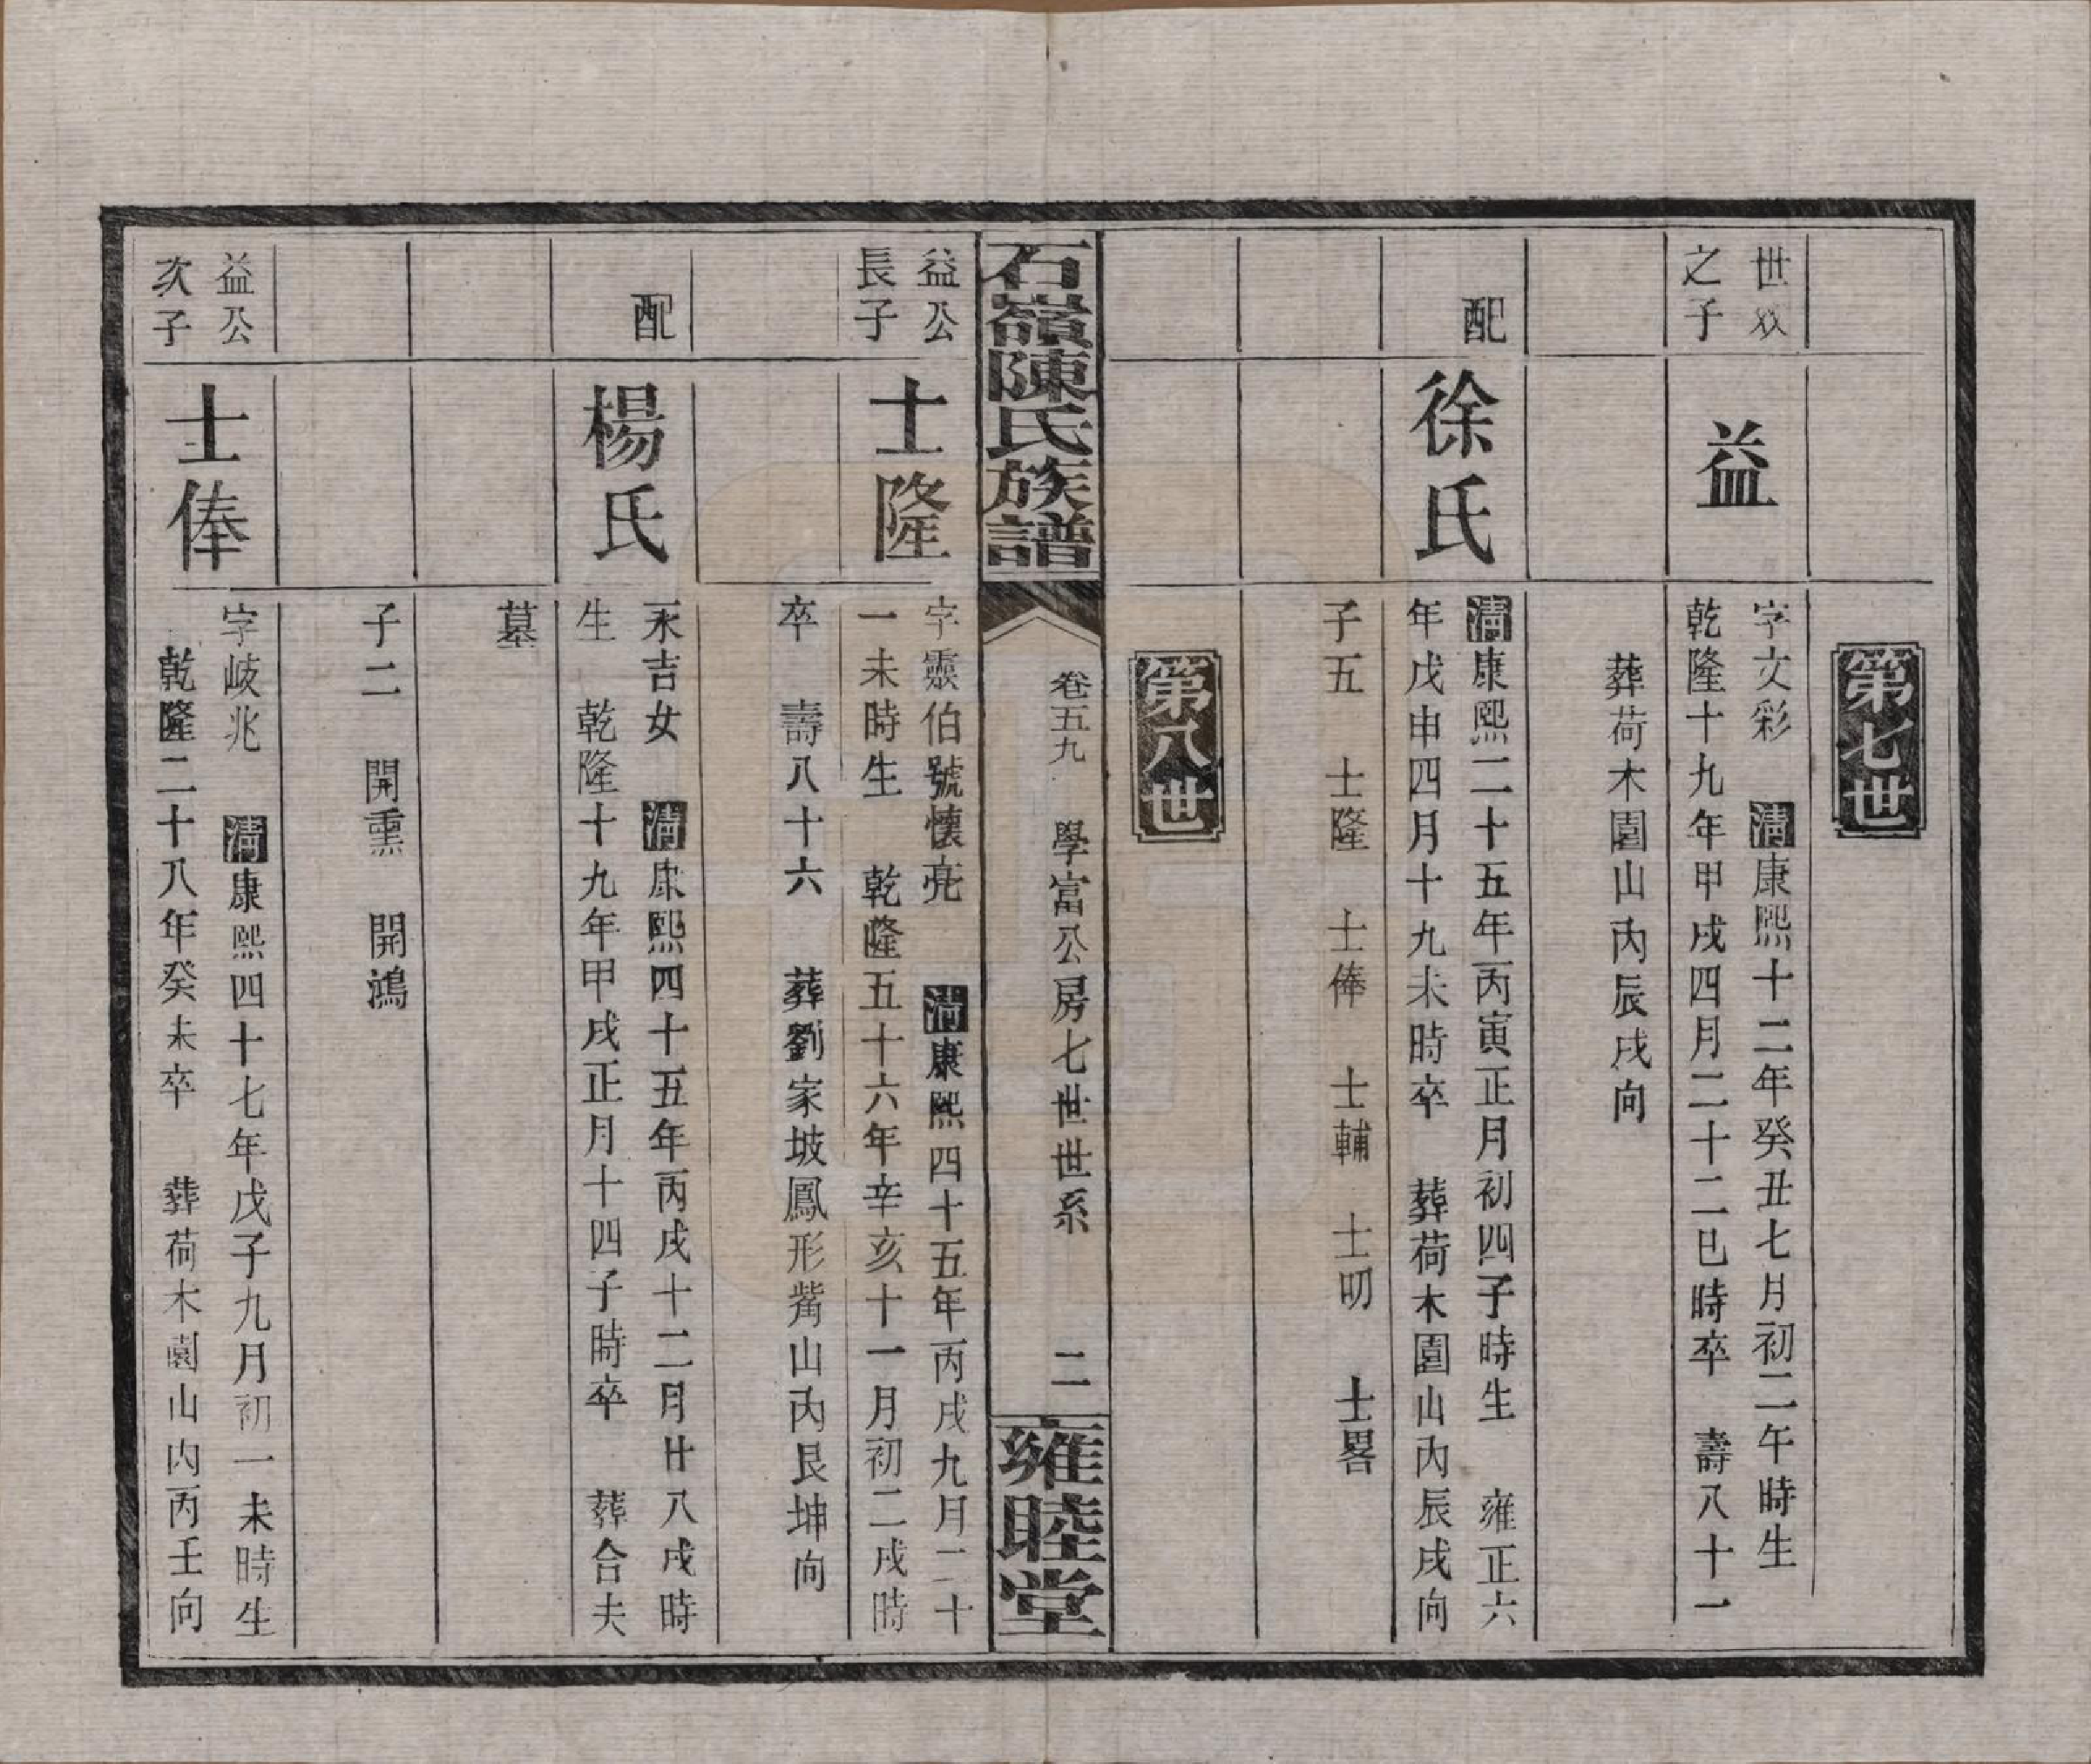 第七世
世双
之子
益
字文彩　清康熙十二年癸丑七月初二午時生
乾隆十九年甲戌四月二十二巳時卒　壽八十一
葬荷木園山內辰戌向
配
徐氏
清康熙二十五年丙寅正月初四子時生　雍正六
年戊申四月十九未時卒　葬荷木園山內辰戌向
子五　士隆　士俸　士輔　士明　士畧
第八世
石嶺陳氏族譜
卷五九　學富公房七世世系　二
雍睦堂
益公
長子
士隆
字靈伯號懷亮　清康熙四十五年丙戌九月二十
一未時生　乾隆五十六年辛亥十一月初二戌時
卒　壽八十六　葬劉家坡鳳形觜山內艮坤向
配
楊氏
永吉女　清康熙四十五年丙戌十二月廿八戌時
生　乾隆十九年甲戌正月十四子時卒　葬合夫
墓
子二　開熏　開鴻
益公
次子
士俸
字岐兆　清康熙四十七年戊子九月初一未時生
乾隆二十八年癸未卒　葬荷木園山內丙壬向